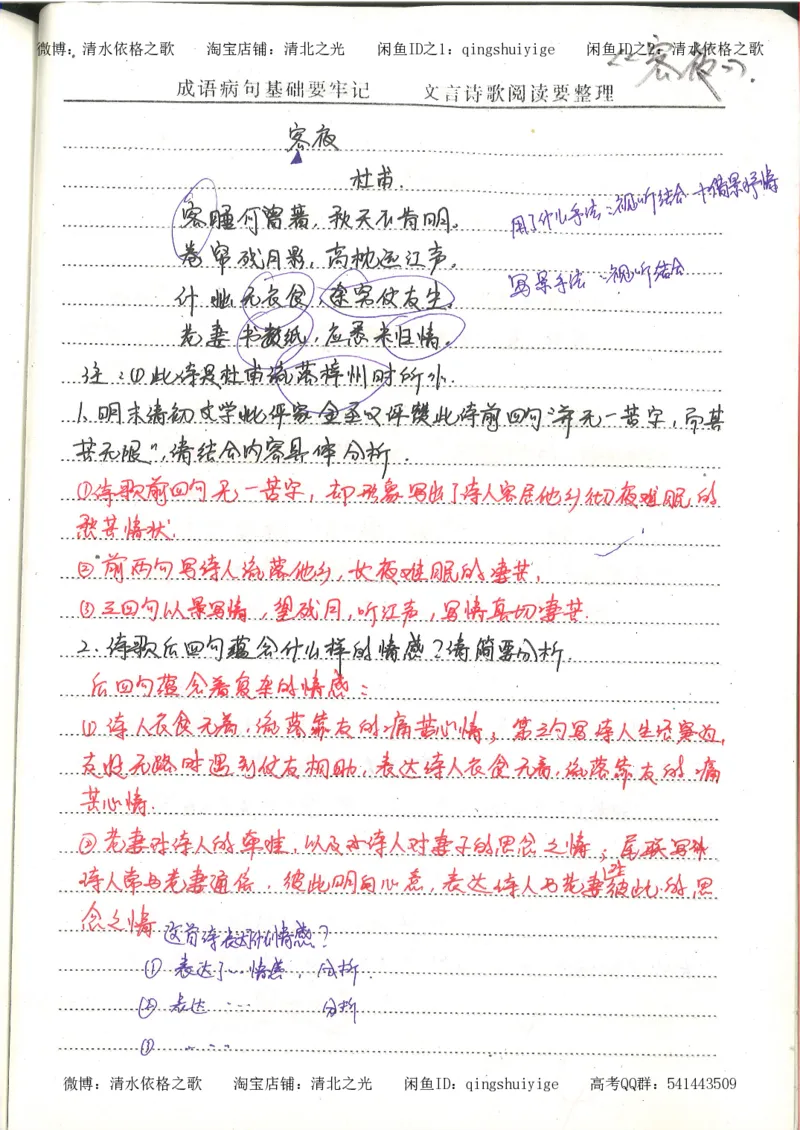 微博：清水依格之歌 淘宝店铺：清北之光 闲鱼ID之1：qingshuiyige 闲鱼ID之2：清水依格之歌
客夜
成语病句基础要牢记 文言诗歌阅读要整理
客夜
杜甫.
客睡何曾著，秋天不肯明。
用了什么手法：视听结合+借景抒情
卷帘残月影，高枕远江声。
写景手法：视听结合
计拙无衣食，途穷仗友生。
老妻书数纸，应悉未归情。
注：①此诗是杜甫流落梓州时所作.
1、明末清初文学批评家金圣叹评赞此诗前四句“并无一苦字，而其
苦无限”，请结合内容具体分析.
①诗歌前四句无一苦字，却形象写出了诗人客居他乡彻夜难眠的
愁苦情状.
②前两句写诗人流落他乡，长夜难眠的凄苦.
③三四句以景写情，望残月，听江声，写情真切凄苦.
2.诗歌后四句蕴含什么样的情感？请简要分析.
后四句蕴含着复杂的情感：
①诗人衣食无着，流落靠友的痛苦心情；第三句写诗人生活窘迫，
友性无路时遇到仗友相助，表达诗人衣食无着，流落靠友的痛
苦心情.
②老妻对诗人的牵挂，以及对诗人对妻子的思念之情；尾联写
诗人常与老妻通信，彼此明白心意，表达诗人与老妻彼此的思
念之情
这首诗表达什么情感？
①表达了…情感，分析.
②表达… 分析
③ …
微博：清水依格之歌 淘宝店铺：清北之光 闲鱼ID：qingshuiyige 高考QQ群：541443509